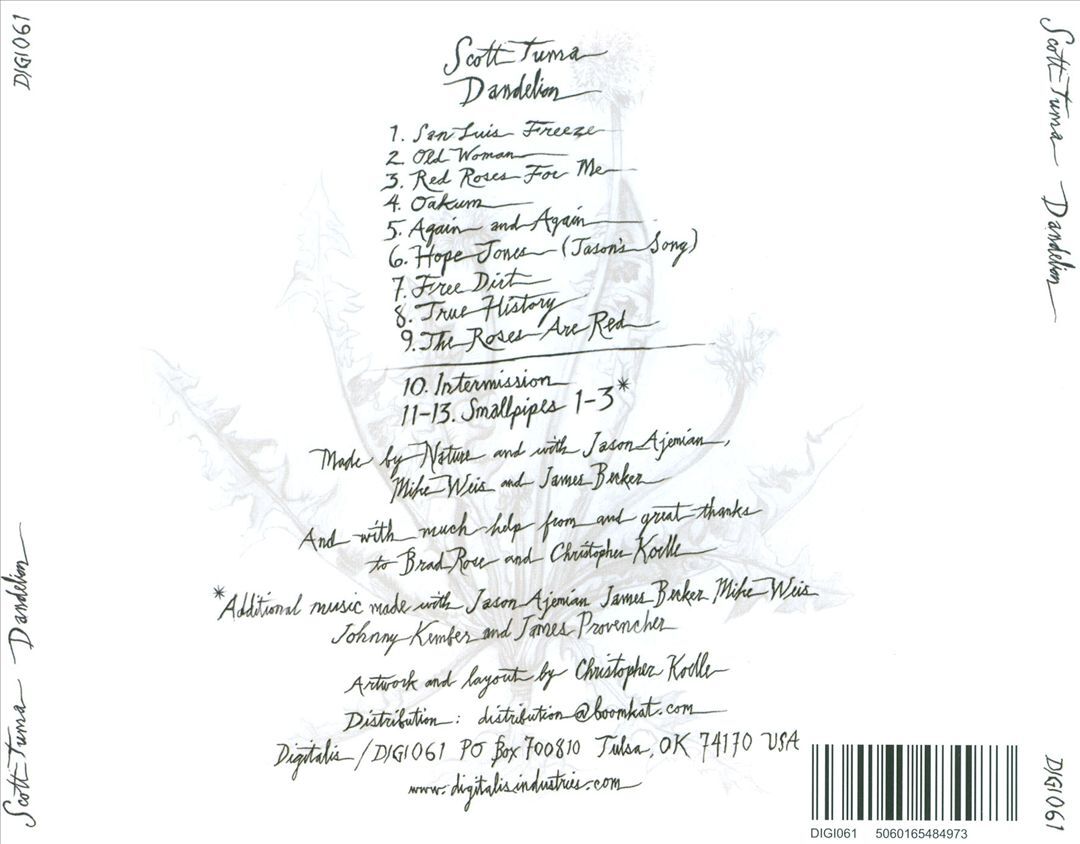 DIGI061
Scott Tuma Dandelion
Scott Tuma
Dandelion
1. San Luis Freeze
2. Old Woman
3. Red Roses For Me
4. Oakum
5. Again and Again
6. Hope Jones (Jason's Song)
7. Free Dirt
8. True History
9. The Roses Are Red
10. Intermission
11-13. Smallpipes 1-3*
Made by Nature and with Jason Ajemian,
Mike Weis and James Becker
And with much help from and great thanks
to Brad Rose and Christopher Koelle
*Additional music made with Jason Ajemian James Becker Mike Weis
Johnny Kember and James Provencher
Artwork and layout by Christopher Koelle
Distribution: distribution@boomkat.com
Digitalis / DIGI061 PO Box 700810 Tulsa, OK 74170 USA
www.digitalisindustries.com
Scott Tuma Dandelion
DIGI061
DIGI061 5060165484973